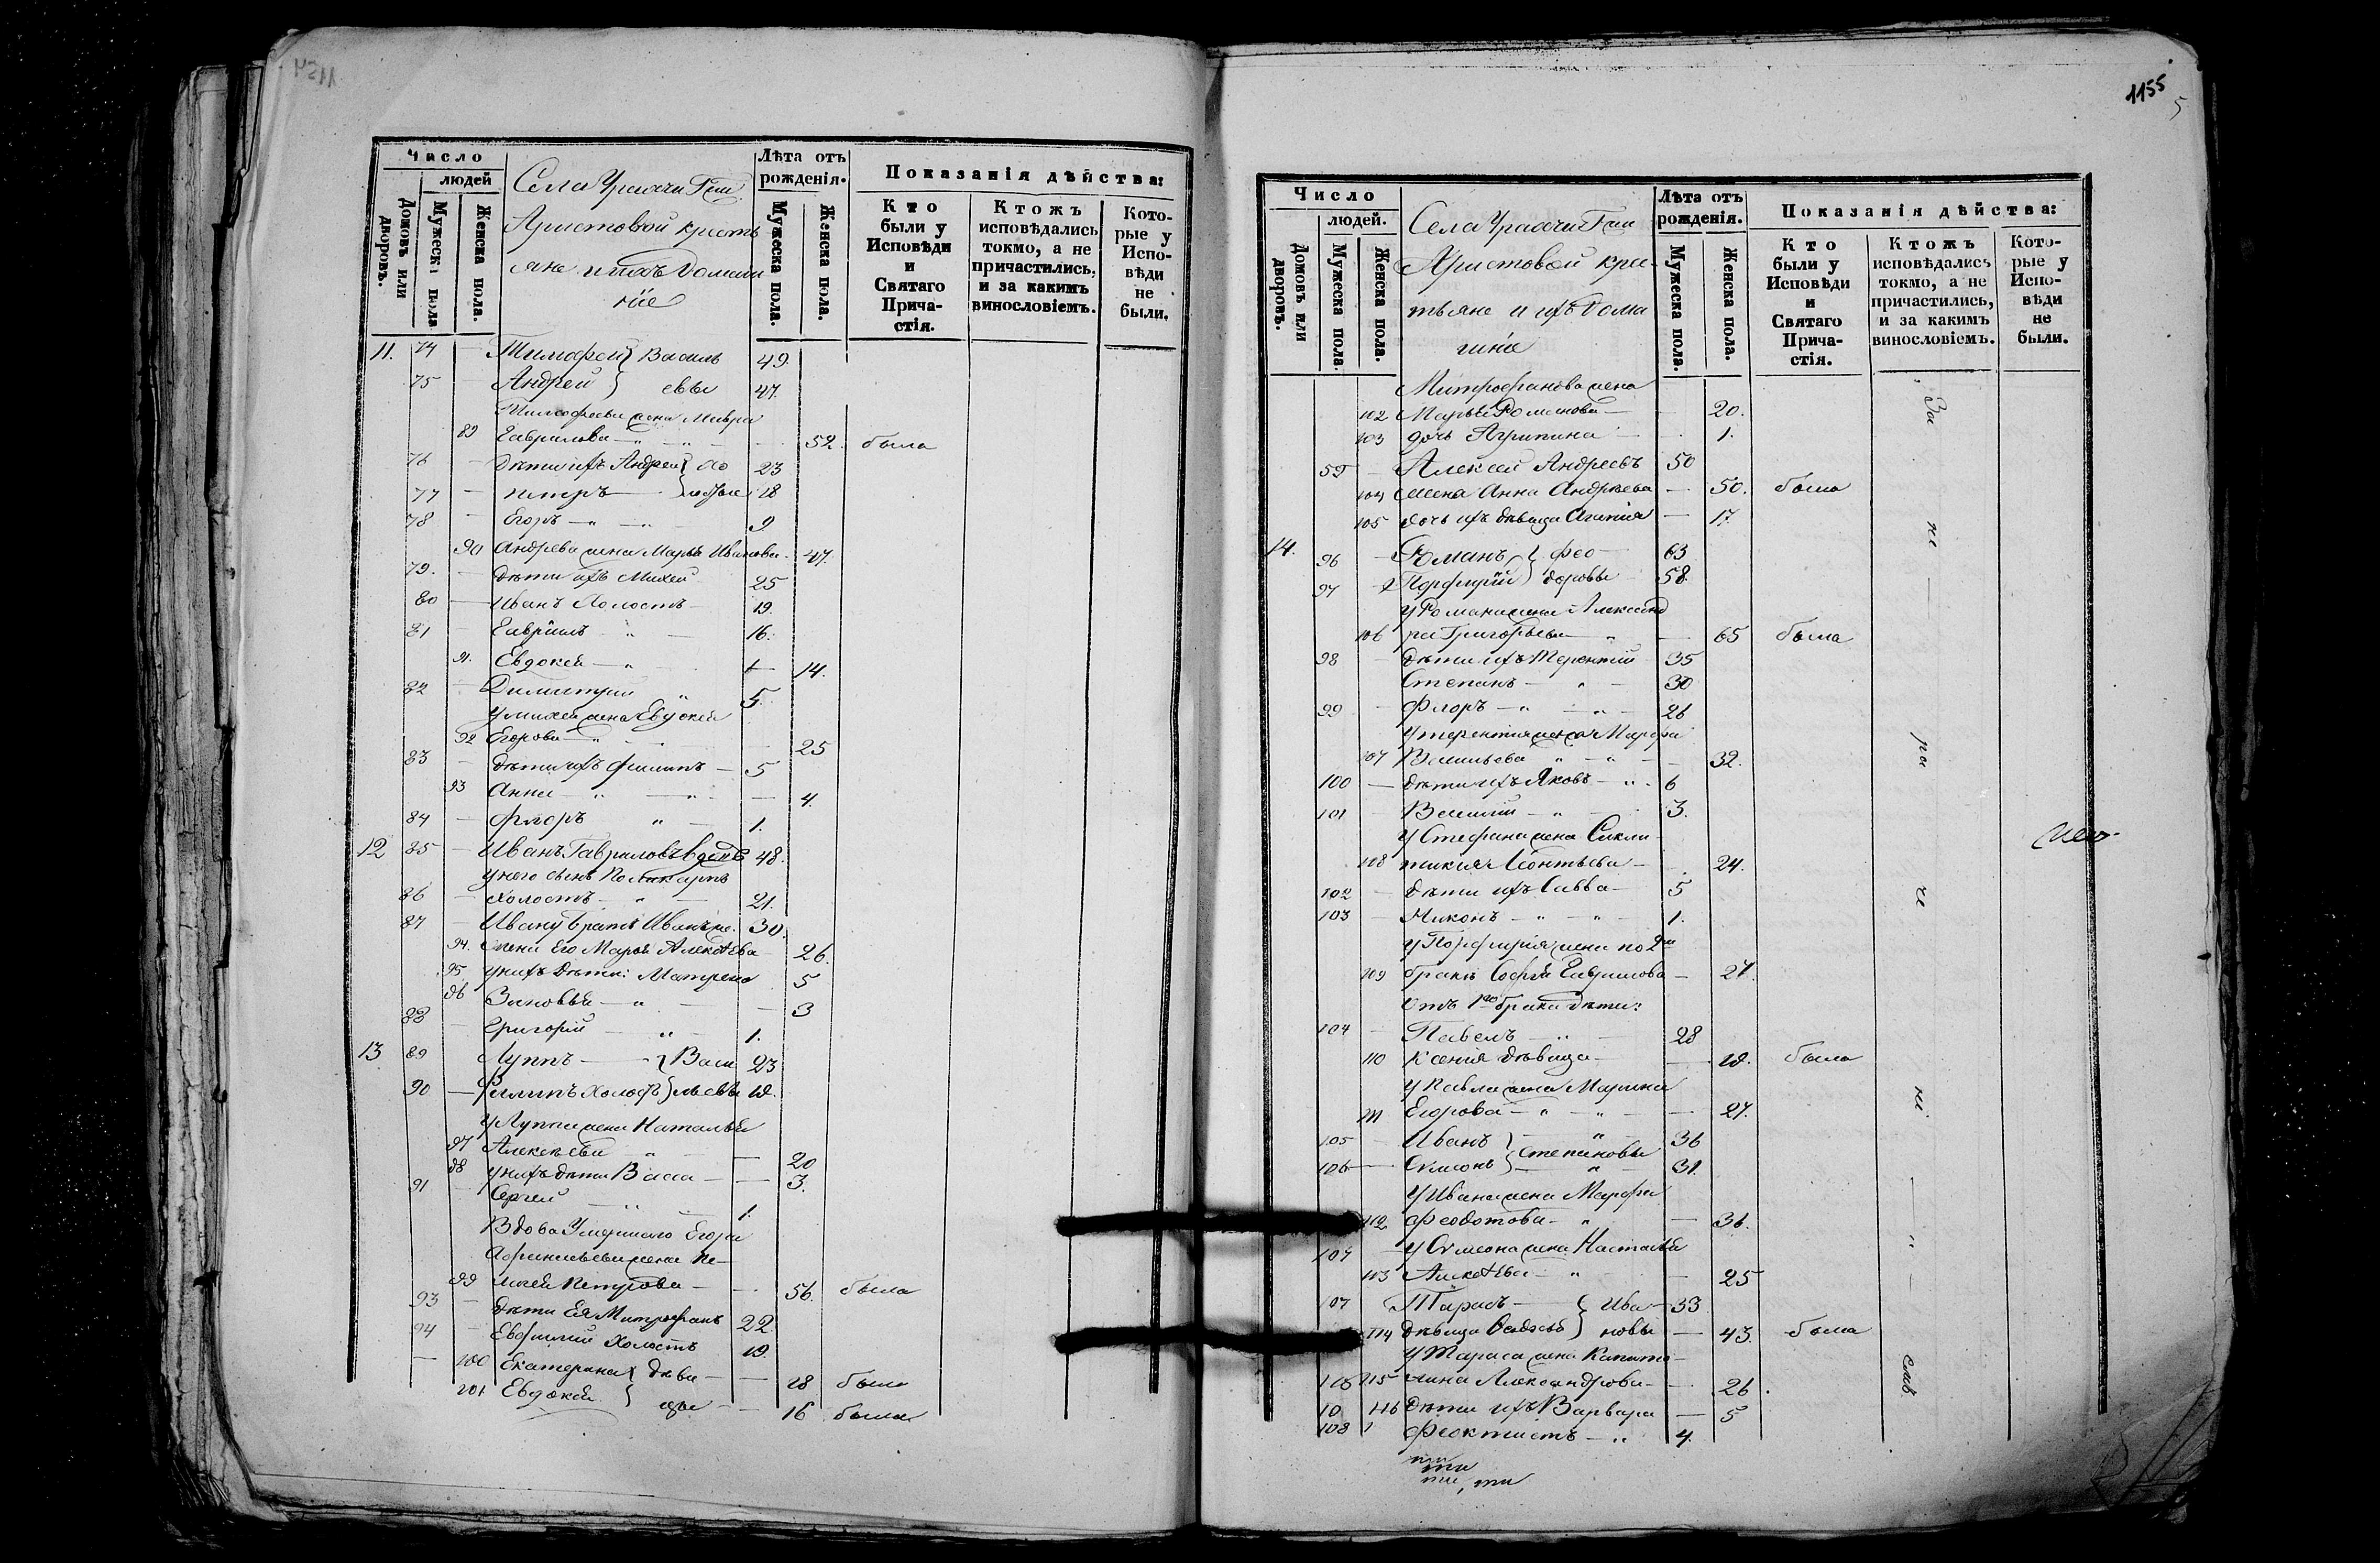 Число
людей
Домовъ или дворовъ.
Мужеска пола
Женска пола.
Села
Аристовой кресть
яне и ихъ Домаш
ніе
Лѣта отъ рожденія.
Мужеска пола.
Женска пола.
Показанія дѣйства:
Кто были у Исповѣди и Святаго Прича-стія.
Ктожъ исповѣдались токмо, а не причастились, и за какимъ винословіемъ.
Кото-рые у Испо-вѣди не были.
11. 74 — Тимофей } Василь 49.
75 — Андрей } евы 47.
Тимофеева жена Мавра
89 Гаврилова — 52. была
76 — Дѣти ихъ Андрей } хо 23
77 — петръ — } лостые 18
78 — Егоръ — 9
90 Андрева жена Марья Иванова — 47.
79. — Дѣти ихъ Михей 25
80 — Иванъ Холостъ 19.
81 — Гавріилъ — 16.
91. Евдокея — 14.
82 — Димитрий 5.
у михея жена Евдокея
92 Егорова — 25
83 — Дѣти ихъ Филипъ — 5
93 Анна — 4.
84 — Флоръ — 1.
12 85 — Иванъ Гавриловъ вдовъ 48.
у него сынъ Поликарпъ
86 — холостъ — 21.
87 — Ивану братъ Иванъ же. 30.
94. Жена Его Марья Алексѣева 26.
95 у нихъ дѣти: Матрена 5
96 Зиновья — 3
88 — Григорий — 1.
13 89 Луппъ — } Васи 23
90 — Филипъ Холостъ } льевы 18.
у Луппа жена Наталья
97 Алексѣева — 20
98 у нихъ дѣти Васса — 3.
91 — Сергей — 1.
Вдова Умершаго Егора
Афанасьева жена Пе-
99 лагея Петрова — 56. была
93 — Дѣти Ея Митрофанъ 22.
94 — Евфимий Холостъ 19.
— 100 Екатерина } дѣви — 18 была
101 Евдокея } цы — 16 была
1155
5
Число
людей.
Домовъ или дворовъ.
Мужеска пола.
Женска пола.
Села
Аристовой крес-
тьяне и ихъ Дома
шніе
Лѣта отъ рожденія.
Мужеска пола.
Женска пола.
Показанія дѣйства:
Кто были у Исповѣди и Святаго Прича-стія.
Ктожъ исповѣдались токмо, а не причастились, и за какимъ винословіемъ.
Кото-рые у Испо-вѣди не были.
Митрофанова жена
102 Марья Романова — 20.
103 дочь Агрипина — 1.
95 — Алексей Андреевъ 50
104 жена Анна Андреева — 50. была
105 дочь ихъ дѣвица Агапия — 17.
14. 96 — Романъ } Фео — 63
97 Порфирій } доровы 58.
у Романа жена Александ
106 ра Григорьева — 65 была
98 — дѣти ихъ Терентий 35
Степанъ — 30
99 — Флоръ — 26
у терентия жена Марфа
107 Васильева — 32.
100 — дѣти ихъ Яковъ — 6
101 — Василий — 3.
у Стефана жена Сикли
108 тикия Леонтьева — 24.
102 — дѣти ихъ Савва — 5
103 — Никонъ — 1.
у Порфирия жена по 2му
109 бракъ Софья Гаврилова — 27.
Отъ 1го брака дѣти:
104 — Павелъ — 28
110 Ксения дѣвица — 18. была
у Павла жена Марина
111 Егорова — 27.
105 — Иванъ } — 36
106 — Симеонъ } Степановы 31.
у Ивана жена Марфа
112 Феодотова — 36.
107 — у Симеона жена Настасья
113 Алексѣева — 25
107 Тарасъ — { Ива — 33
114 дѣвица } новы — 43. была
у Тараса жена Капито-
115 лина Александрова — 26.
116 дѣти ихъ Варвара — 5
108 Феоктистъ — 4.
За
не
ра